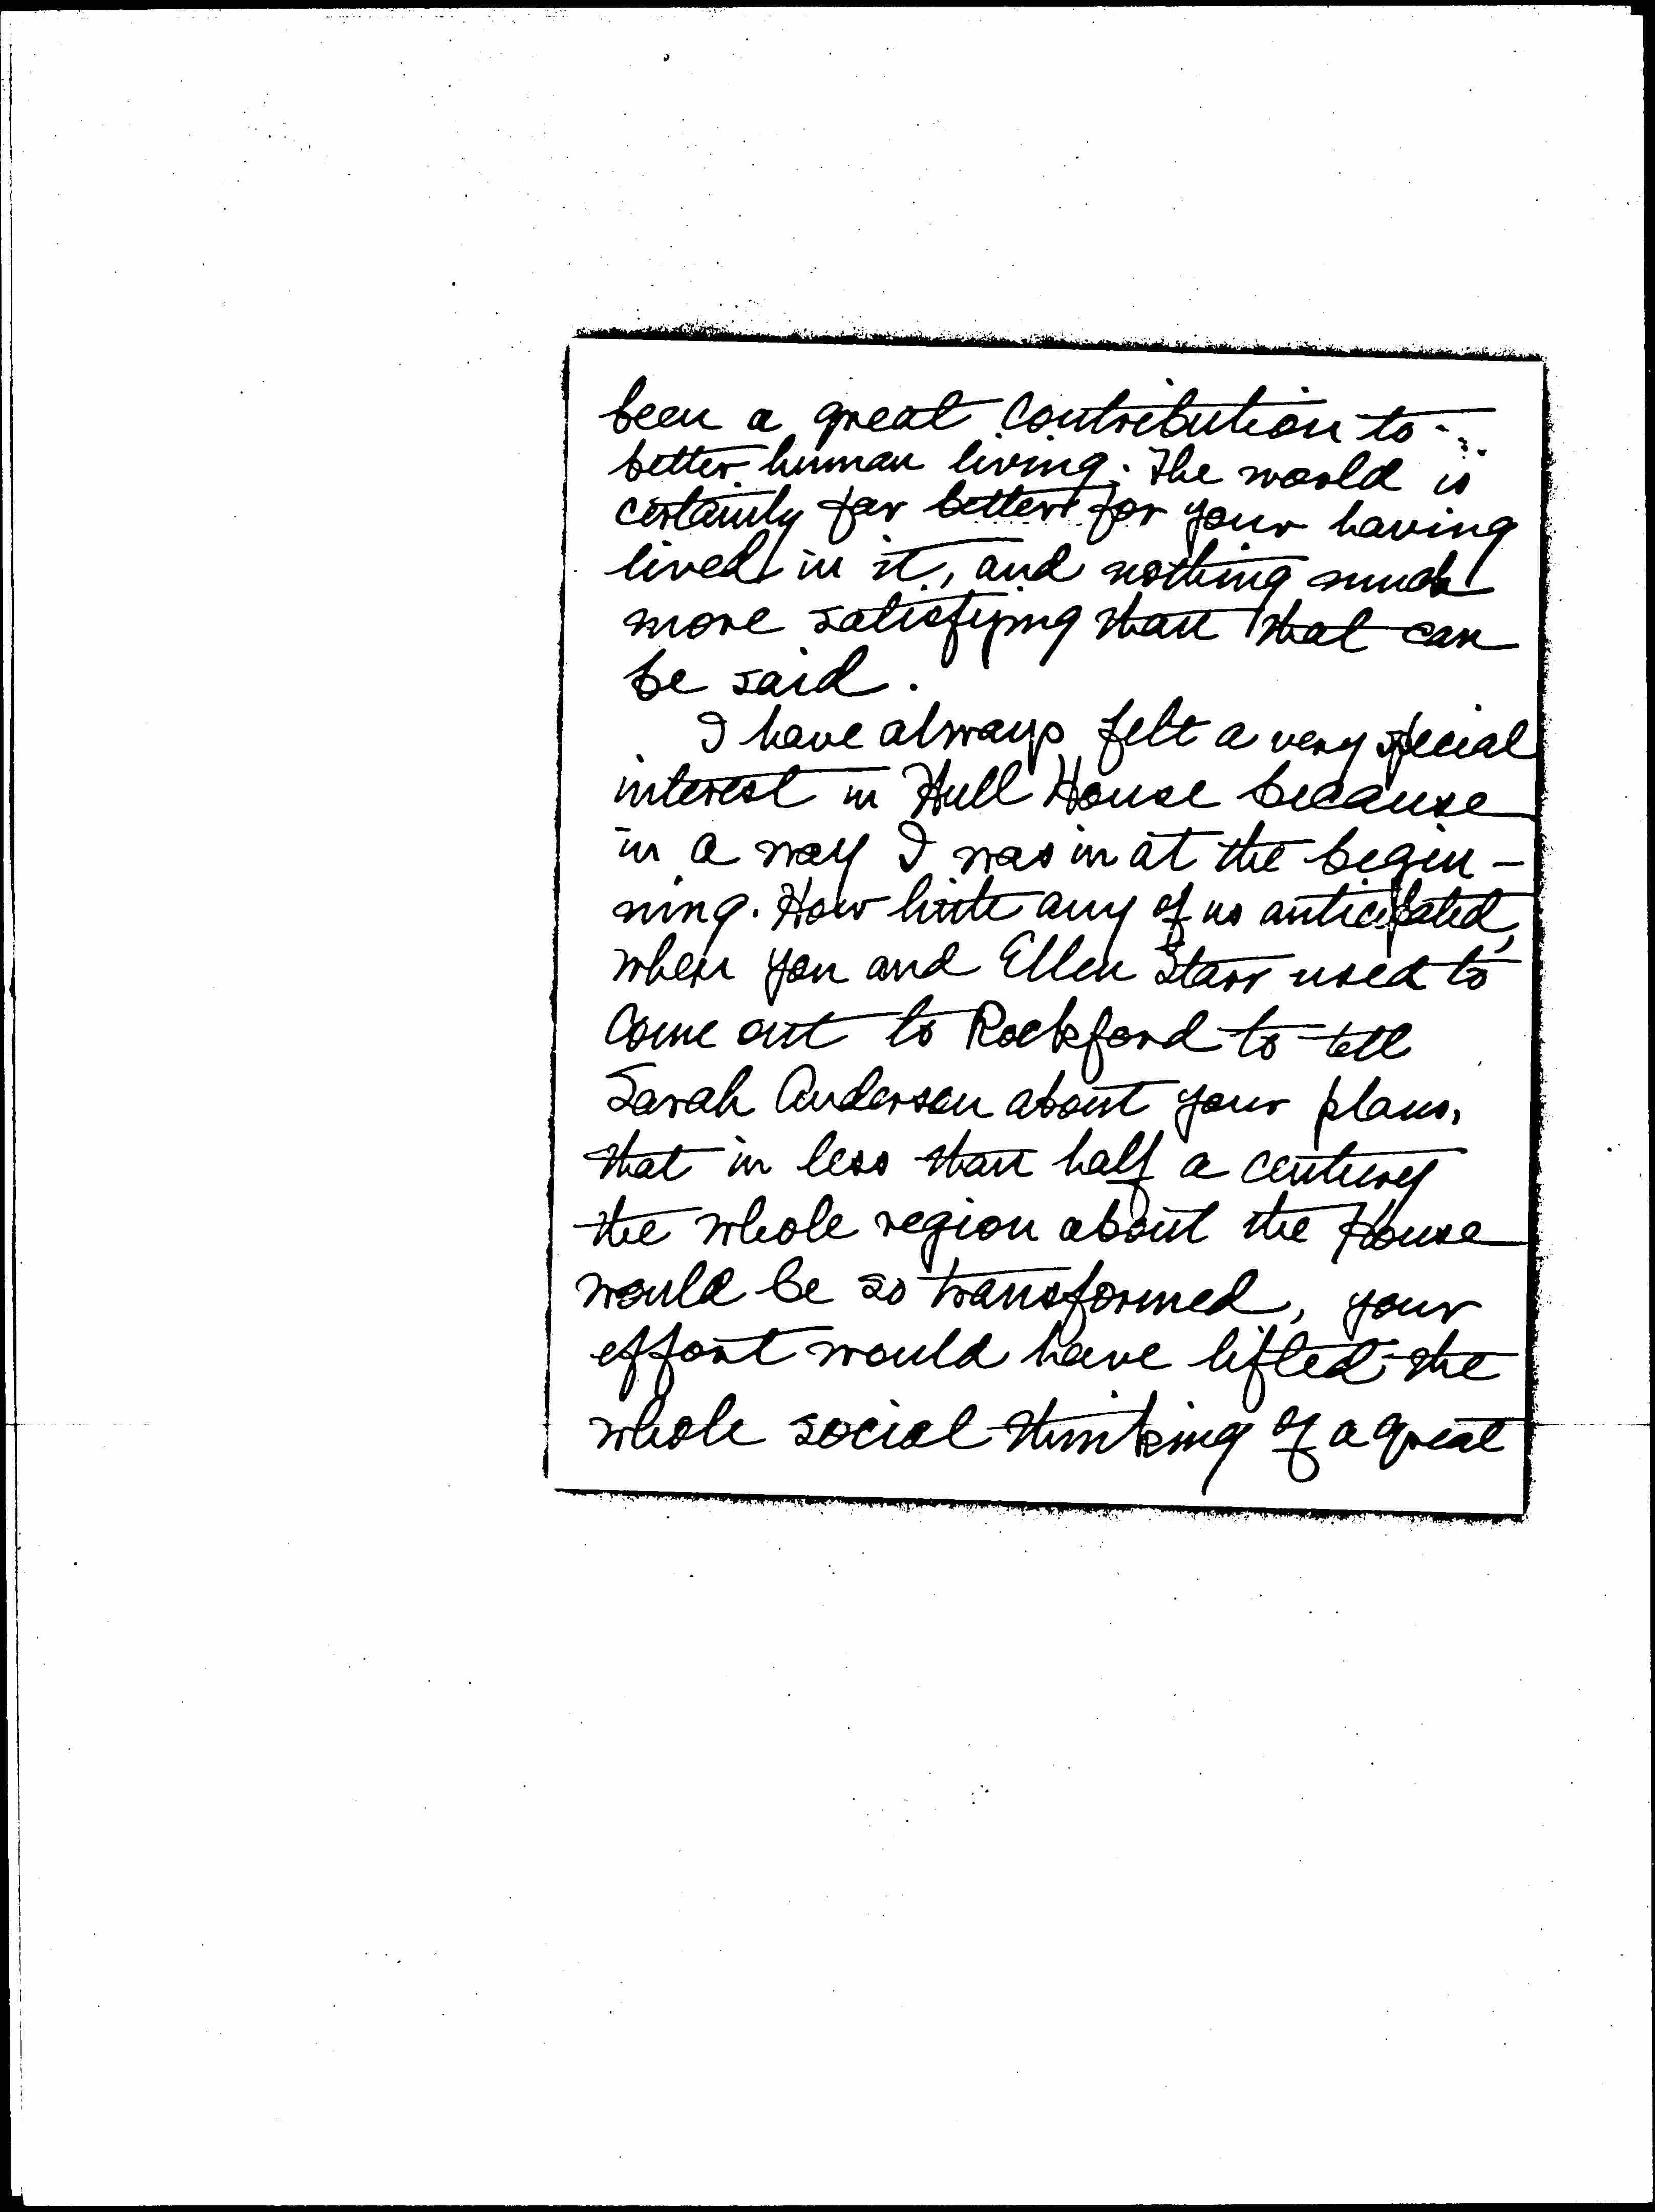 been a great contribution to
better human living. The world is
certainly far better for your having
lived in it, and nothing much
more satisfying than that can
be said.
I have always felt a very special
interest in Hull House because
in a way I was in at the begin-
ning. How little any of us anticipated,
when you and Ellen Starr used to
come out to Rockford to tell
Sarah Anderson about your plans,
that in less than half a century
the whole region about the House
would be so transformed, your
effort would have lifted the
whole social thinking of a great